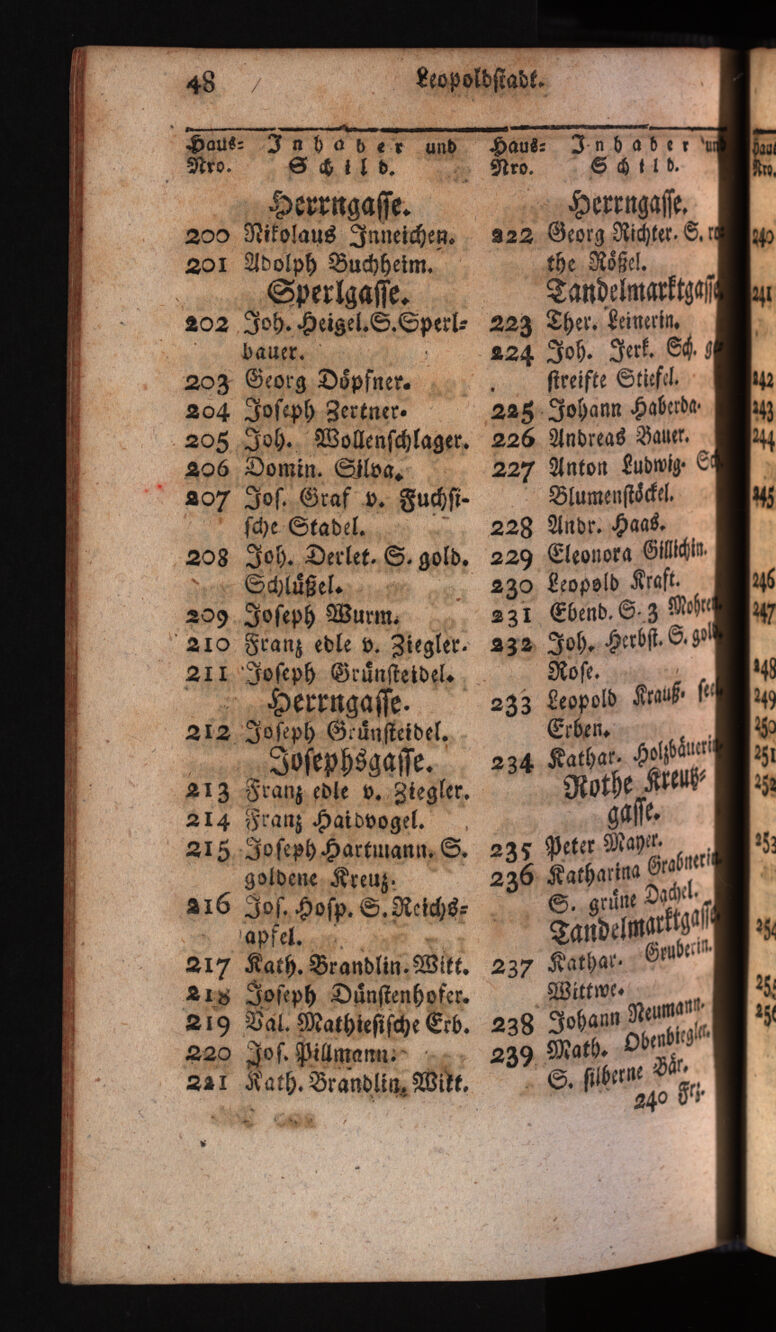 48
Leopoldstadt.
Haus= Inhaber und
Nro. Schild.
Herrngasse.
200 Nikolaus Inneichen.
201 Adolph Buchheim.
Sperlgasse.
202 Joh. Heigel. S. Sperl=
bauer.
203 Georg Döpfner.
204 Joseph Zertner.
205 Joh. Wollenschlager.
206 Domin. Silva.
207 Jos. Graf v. Fuchsi-
sche Stadel.
208 Joh. Derlet. S. gold.
Schlüßel.
209 Joseph Wurm.
210 Franz edle v. Ziegler.
211 Joseph Grünsteidel.
Herrngasse.
212 Joseph Grünsteidel.
Josephsgasse.
213 Franz edle v. Ziegler.
214 Franz Haidvogel.
215 Joseph Hartmann. S.
goldene Kreuz.
216 Jos. Hosp. S. Reichs=
apfel.
217 Kath. Brandlin. Witt.
218 Joseph Dünstenhofer.
219 Val. Mathiesische Erb.
220 Jos. Pillmann.
221 Kath. Brandlin. Witt.
Haus= Inhaber
Nro. Schild.
Herrngasse.
222 Georg Richter. S.
the Rößel.
Tandelmarktgass
223 Ther. Leinerin.
224 Joh. Jerk. Sch.
streifte Stiefel.
225 Johann Haberda-
226 Andreas Bauer.
227 Anton Ludwig.
Blumenstöckel.
228 Andr. Haas.
229 Eleonora Gillichin.
230 Leopold Kraft.
231 Ebend. S. 3 Mohren
232 Joh. Herbst. S. gold
Rose.
233 Leopold Krauß. seel
Erben.
234 Kathar. Holzbäuerin
Rothe Kreuz=
gasse.
235 Peter Mayer.
236 Katharina Grabnerin
S. grüne Dachel.
Tandelmarktgasse
237 Kathar. Gruberin.
Wittwe.
238 Johann Neumann.
239 Math. Obenbiegler.
S. silberne Bär.
240 Fr.
240
241
242
243
244
245
246
247
248
249
250
251
252
253